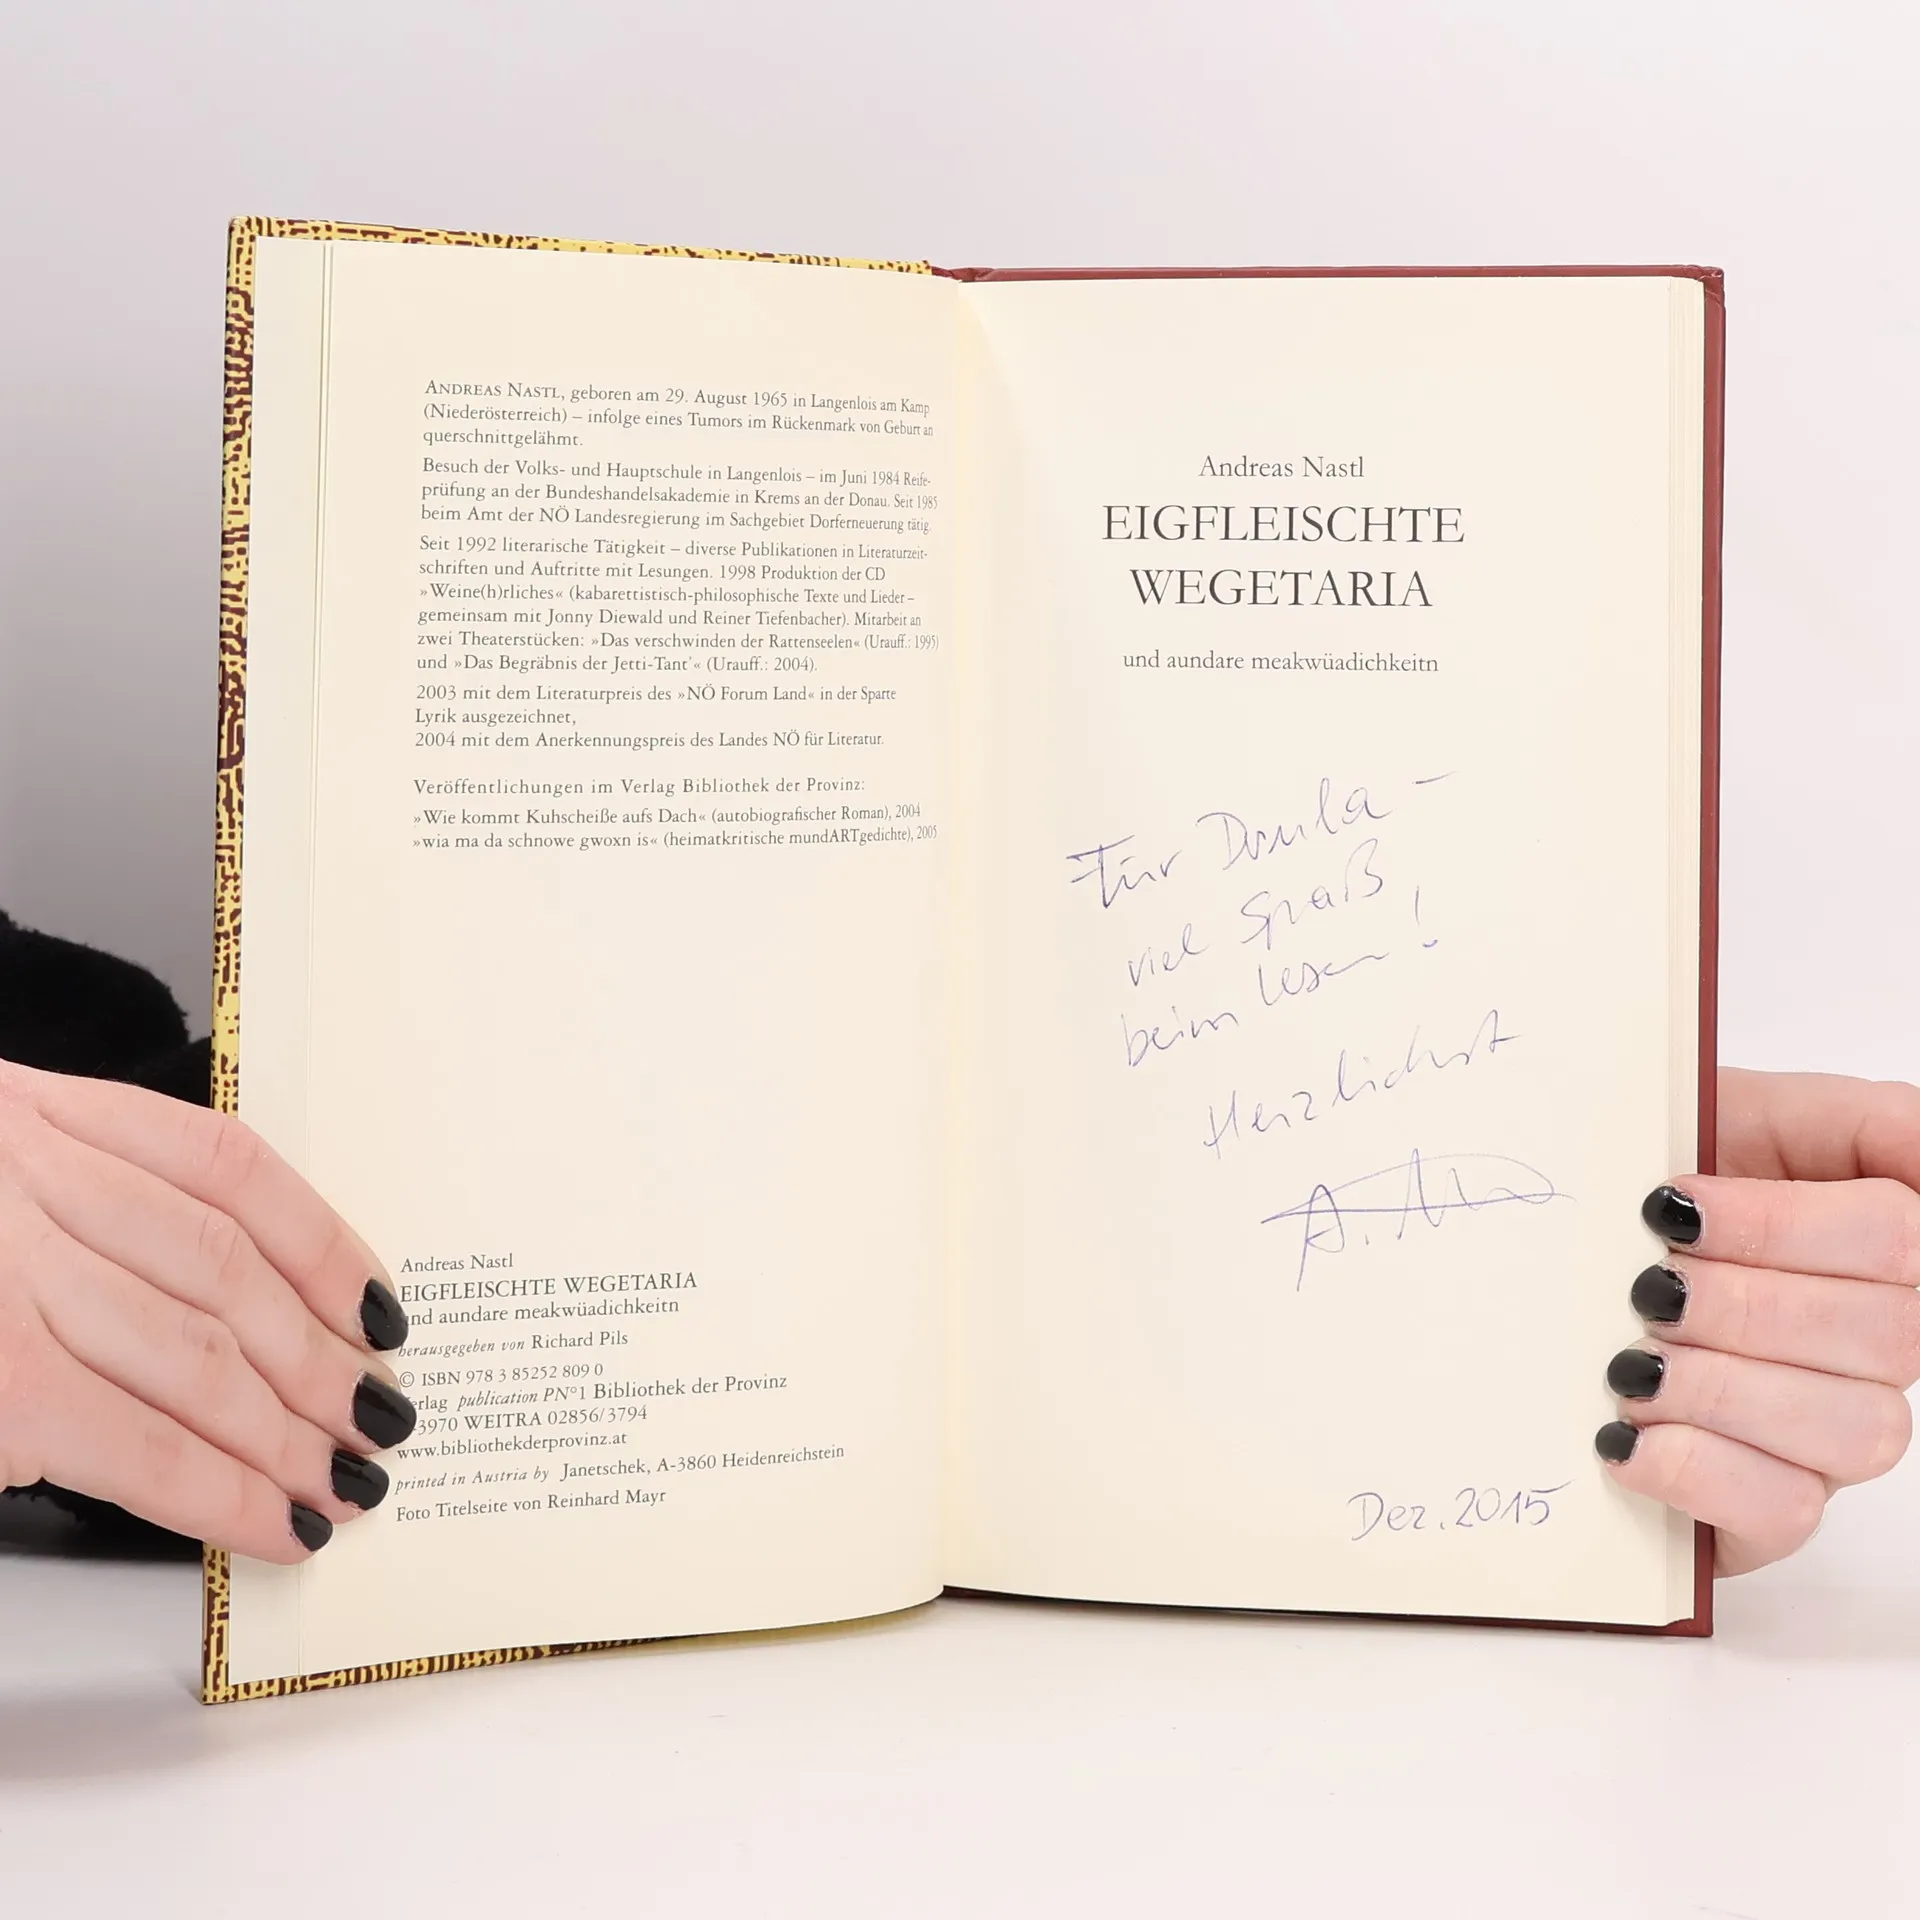 ANDREAS NASTL, geboren am 29. August 1965 in Langenlois am Kamp
(Niederösterreich) – infolge eines Tumors im Rückenmark von Geburt an
querschnittgelähmt.
Besuch der Volks- und Hauptschule in Langenlois – im Juni 1984 Reife-
prüfung an der Bundeshandelsakademie in Krems an der Donau. Seit 1985
beim Amt der NÖ Landesregierung im Sachgebiet Dorferneuerung tätig.
Seit 1992 literarische Tätigkeit – diverse Publikationen in Literaturzeit-
schriften und Auftritte mit Lesungen. 1998 Produktion der CD
»Weine(h)rliches« (kabarettistisch-philosophische Texte und Lieder –
gemeinsam mit Jonny Diewald und Reiner Tiefenbacher). Mitarbeit an
zwei Theaterstücken: »Das verschwinden der Rattenseelen« (Urauff.: 1995)
und »Das Begräbnis der Jetti-Tant'« (Urauff.: 2004).
2003 mit dem Literaturpreis des »NÖ Forum Land« in der Sparte
Lyrik ausgezeichnet,
2004 mit dem Anerkennungspreis des Landes NÖ für Literatur.
Veröffentlichungen im Verlag Bibliothek der Provinz:
»Wie kommt Kuhscheiße aufs Dach« (autobiografischer Roman), 2004
»wia ma da schnowe gwoxn is« (heimatkritische mundARTgedichte), 2005
Andreas Nastl
EIGFLEISCHTE WEGETARIA
und aundare meakwüadichkeitn
herausgegeben von Richard Pils
© ISBN 978 3 85252 809 0
erlag publication PN°1 Bibliothek der Provinz
-3970 WEITRA 02856/3794
www.bibliothekderprovinz.at
printed in Austria by Janetschek, A-3860 Heidenreichstein
Foto Titelseite von Reinhard Mayr
Andreas Nastl
EIGFLEISCHTE
WEGETARIA
und aundare meakwüadichkeitn
Für –
viel Spaß
beim Lesen!
Herzlichst
A.
Dez. 2015